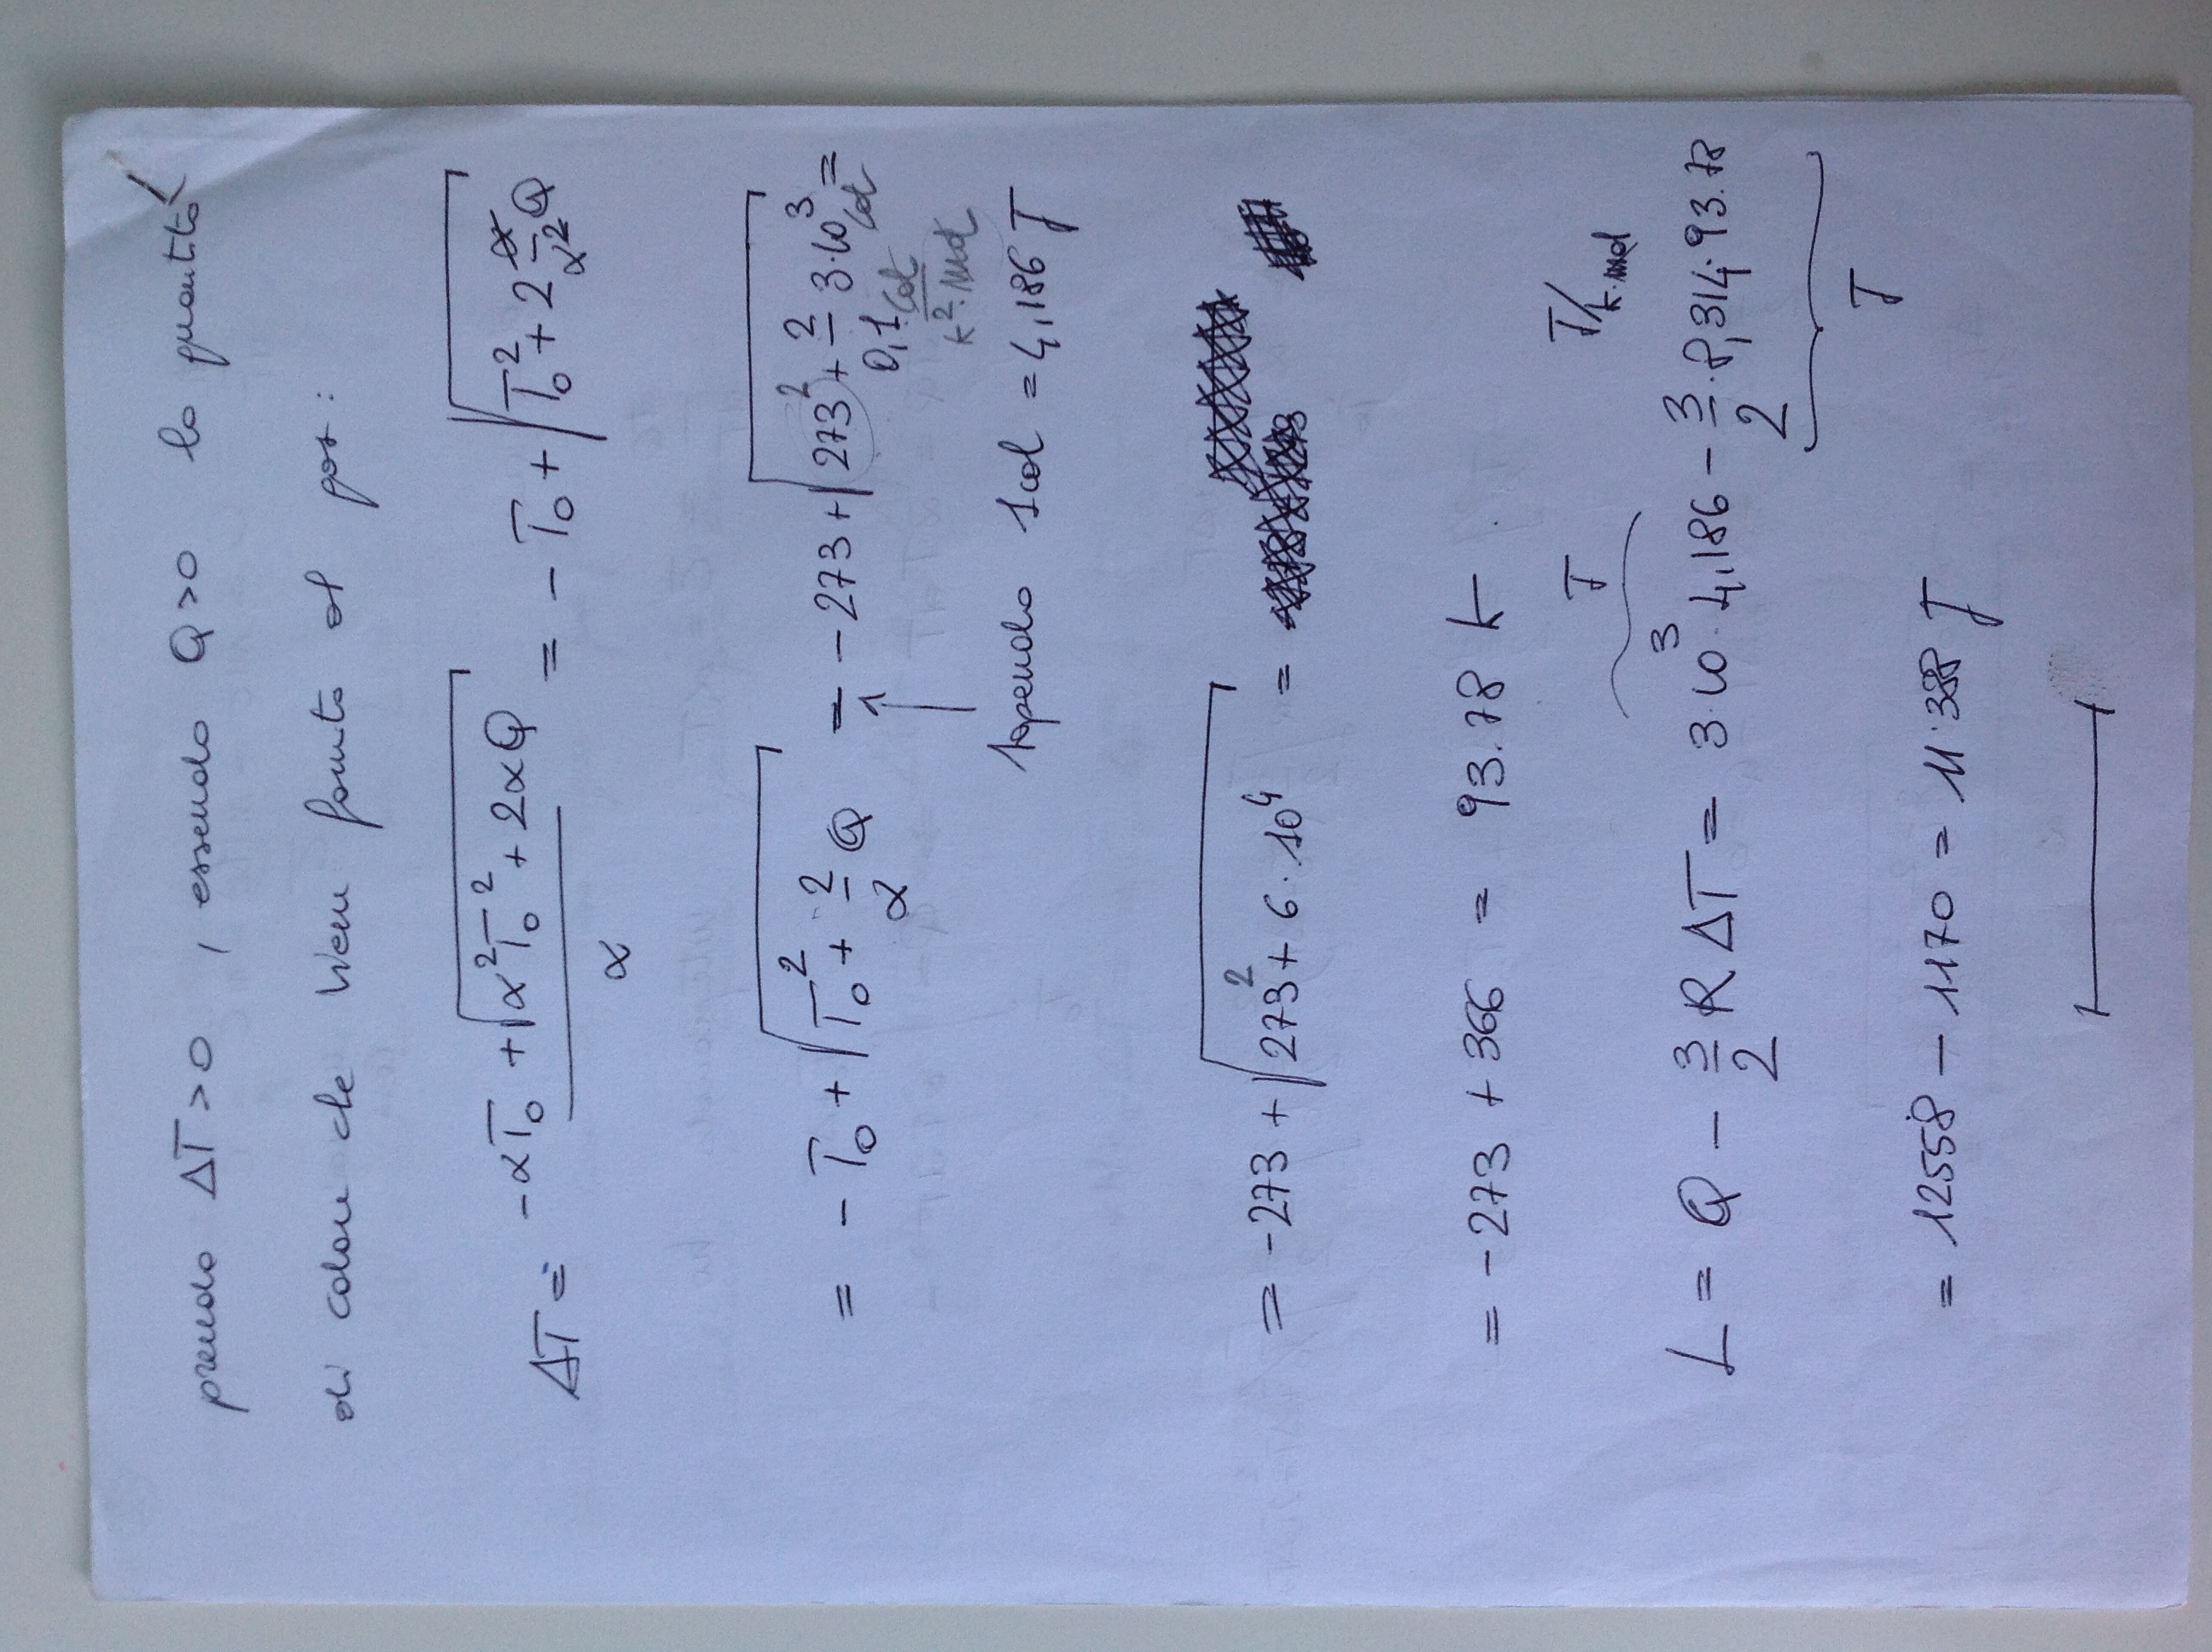 prendo ΔT>0 , essendo Q>0 la quantità
di calore che viene fornito al gas:
ΔT = (-αT₀ + √(α²T₀² + 2αQ)) / α = -T₀ + √(T₀² + 2 α/α² Q)
= -T₀ + √(T₀² + 2/α Q) = -273 + √(273² + 2/(0,1 cal/(k²·mol)) 3·10³ cal) =
↑
sapendo 1cal = 4,186 J
= -273 + √(273² + 6·10⁴) =
= -273 + 366 = 93.78 K
J J/k·mol
L = Q - 3/2 R ΔT = 3·10³·4,186 - 3/2·8,314·93.78
J
= 12558 - 1170 = 11.388 J